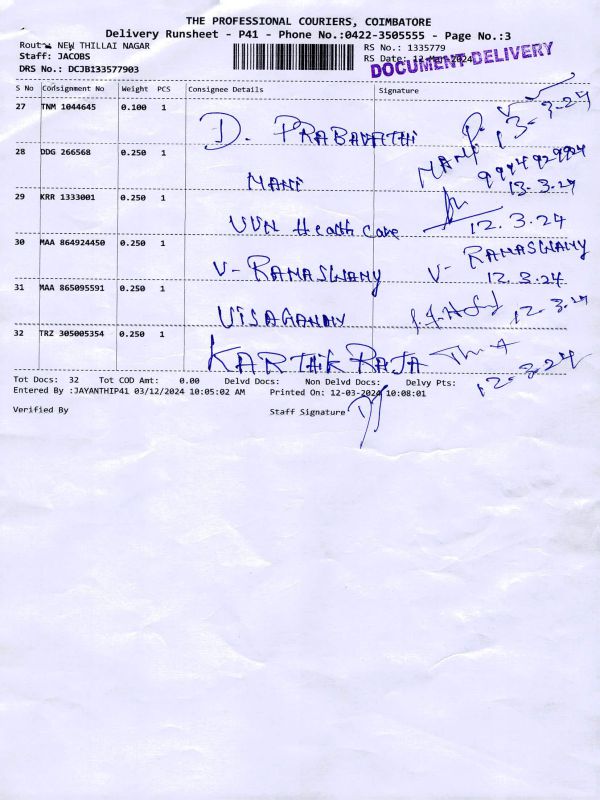 THE PROFESSIONAL COURIERS, COIMBATORE
Delivery Runsheet - P41 - Phone No.:0422-3505555 - Page No.:3
Route: NEW THILLAI NAGAR RS No.: 1335779
Staff: JACOBS RS Date: 12-Mar-2024
DRS No.: DCJB133577903 DOCUMENT DELIVERY
S No Consignment No Weight PCS Consignee Details Signature
27 TNM 1044645 0.100 1
D. PRABAVATHI 13-3-24
28 DDG 266568 0.250 1
MANI MANI 9994929924
13.3.24
29 KRR 1333001 0.250 1
UVN Health care 12.3.24
30 MAA 864924450 0.250 1
V-RAMASWAMY V-RAMASWAMY
12.3.24
31 MAA 865095591 0.250 1
VISAGAMANY 12.3.24
32 TRZ 305005354 0.250 1
KARTHIK RAJA
12.3.24
Tot Docs: 32 Tot COD Amt: 0.00 Delvd Docs: Non Delvd Docs: Delvy Pts:
Entered By :JAYANTHIP41 03/12/2024 10:05:02 AM Printed On: 12-03-2024 10:08:01
Verified By Staff Signature